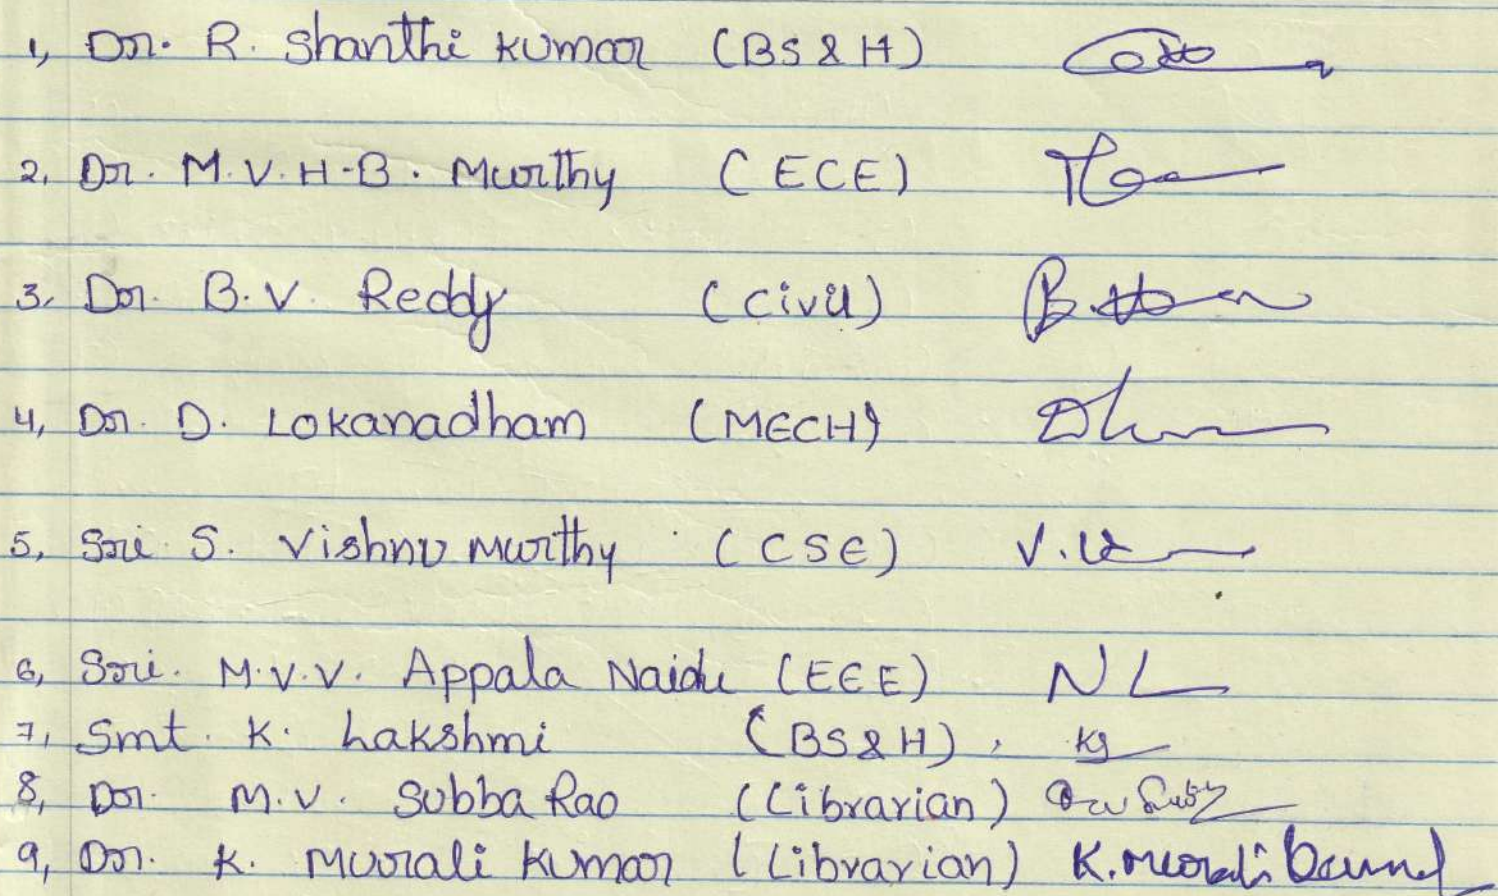 1, Dr. R. Shanthi Kumar (BS & H)
2, Dr. M.V.H.B. Murthy (ECE)
3, Dr. B.V. Reddy (Civil)
4, Dr. D. Lokanadham (MECH)
5, Sri S. Vishnu Murthy (CSE)
6, Sri. M.V.V. Appala Naidu (EEE) NL
7, Smt. K. Lakshmi (BS & H),
8, Dr. M.V. Subba Rao (Librarian)
9, Dr. K. Murali Kumar (Librarian) K. Murali